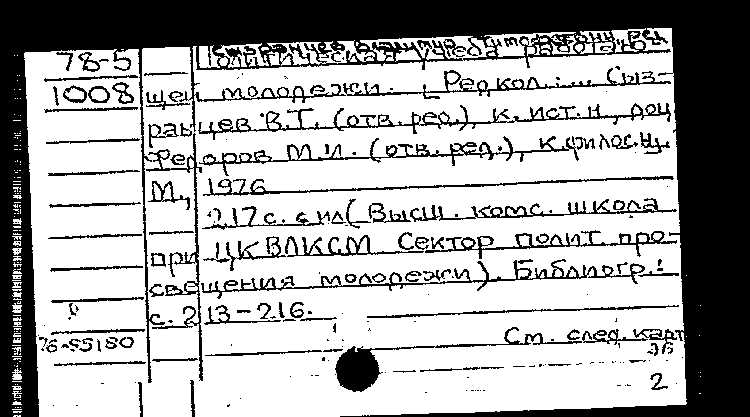 78-5
1008
Сызранцев Владимир Тимофеевич, ред
Политическая учеба работаю-
щей молодежи. [Редкол.: ... Сыз-
ранцев В.Т. (отв. ред.), к. ист. н, доц
Федоров М.И. (отв. ред.), к.филос.н.
М., 1976
217 с. с ил (Высш. комс. школа
при ЦКВЛКСМ Сектор полит про-
свещения молодежи). Библиогр.:
с. 213-216.
76-55180
См. след. карт
2